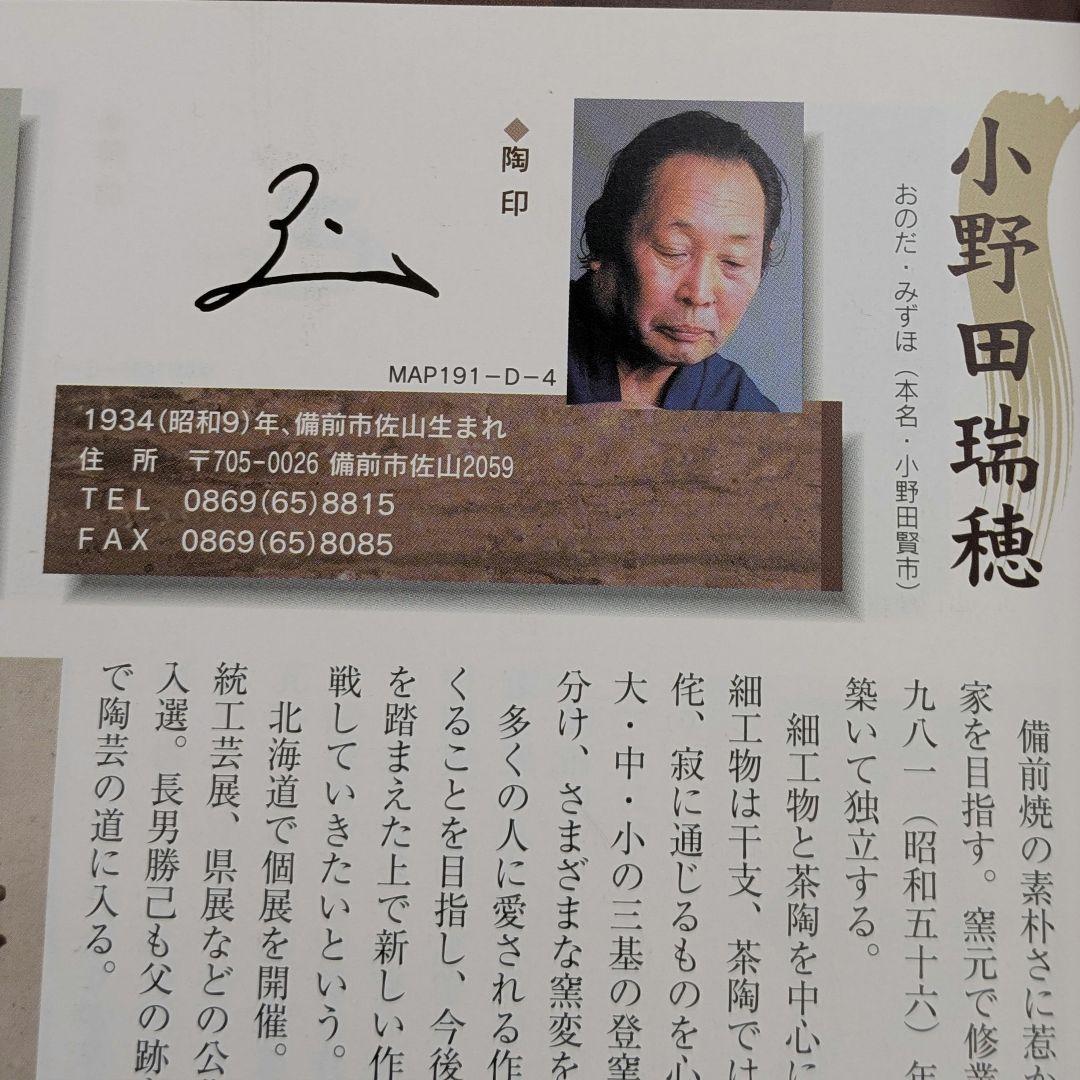 小野田瑞穂
おのだ・みずほ（本名・小野田賢市）
◆陶印
MAP191-D-4
1934(昭和9)年、備前市佐山生まれ
住　所　〒705-0026 備前市佐山2059
TEL　0869(65)8815
FAX　0869(65)8085
備前焼の素朴さに惹か
家を目指す。窯元で修業
九八一（昭和五十六）年
築いて独立する。
細工物と茶陶を中心に
細工物は干支、茶陶では
侘、寂に通じるものを心
大・中・小の三基の登窯
分け、さまざまな窯変を
多くの人に愛される作
くることを目指し、今後
を踏まえた上で新しい作
戦していきたいという。
北海道で個展を開催。
統工芸展、県展などの公
入選。長男勝己も父の跡
で陶芸の道に入る。